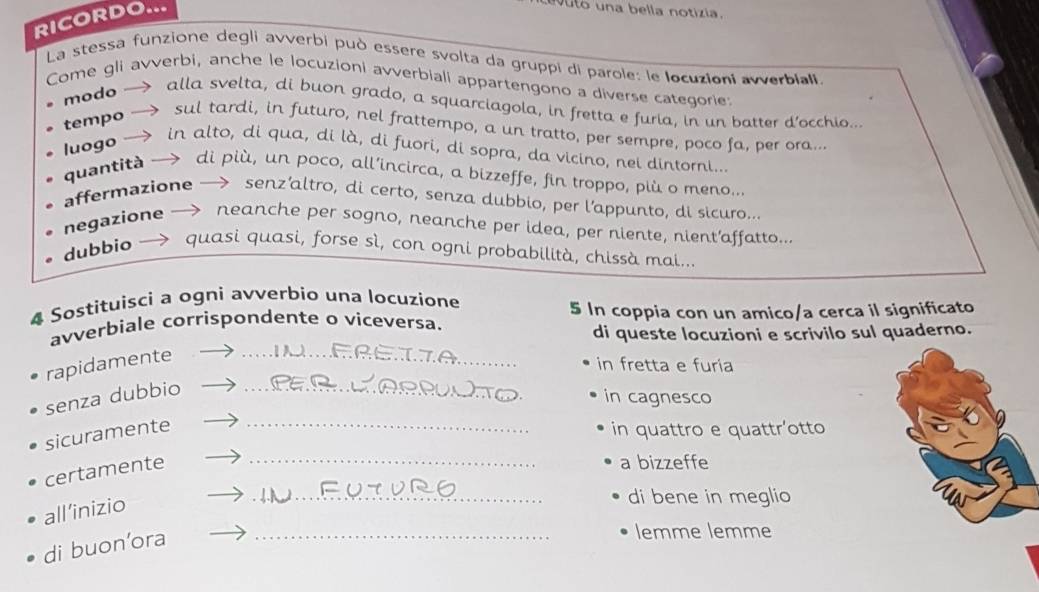 una bella notizia.
RICORDO...
La stessa funzione degli avverbi può essere svolta da gruppi di parole: le locuzioni avverbiali.
Come gli avverbi, anche le locuzioni avverbiali appartengono a diverse categorie:
• modo → alla svelta, di buon grado, a squarciagola, in fretta e furia, in un batter d'occhio...
• tempo → sul tardi, in futuro, nel frattempo, a un tratto, per sempre, poco fa, per ora...
• luogo → in alto, di qua, di là, di fuori, di sopra, da vicino, nei dintorni...
• quantità → di più, un poco, all'incirca, a bizzeffe, fin troppo, più o meno...
• affermazione → senz'altro, di certo, senza dubbio, per l'appunto, di sicuro...
• negazione → neanche per sogno, neanche per idea, per niente, nient'affatto...
• dubbio → quasi quasi, forse sì, con ogni probabilità, chissà mai...
4 Sostituisci a ogni avverbio una locuzione
avverbiale corrispondente o viceversa.
• rapidamente → IN FRETTA
• senza dubbio → PER L'APPUNTO
• sicuramente →
• certamente →
• all'inizio → IN FUTURO
• di buon'ora →
5 In coppia con un amico/a cerca il significato
di queste locuzioni e scrivilo sul quaderno.
• in fretta e furia
• in cagnesco
• in quattro e quattr'otto
• a bizzeffe
• di bene in meglio
• lemme lemme